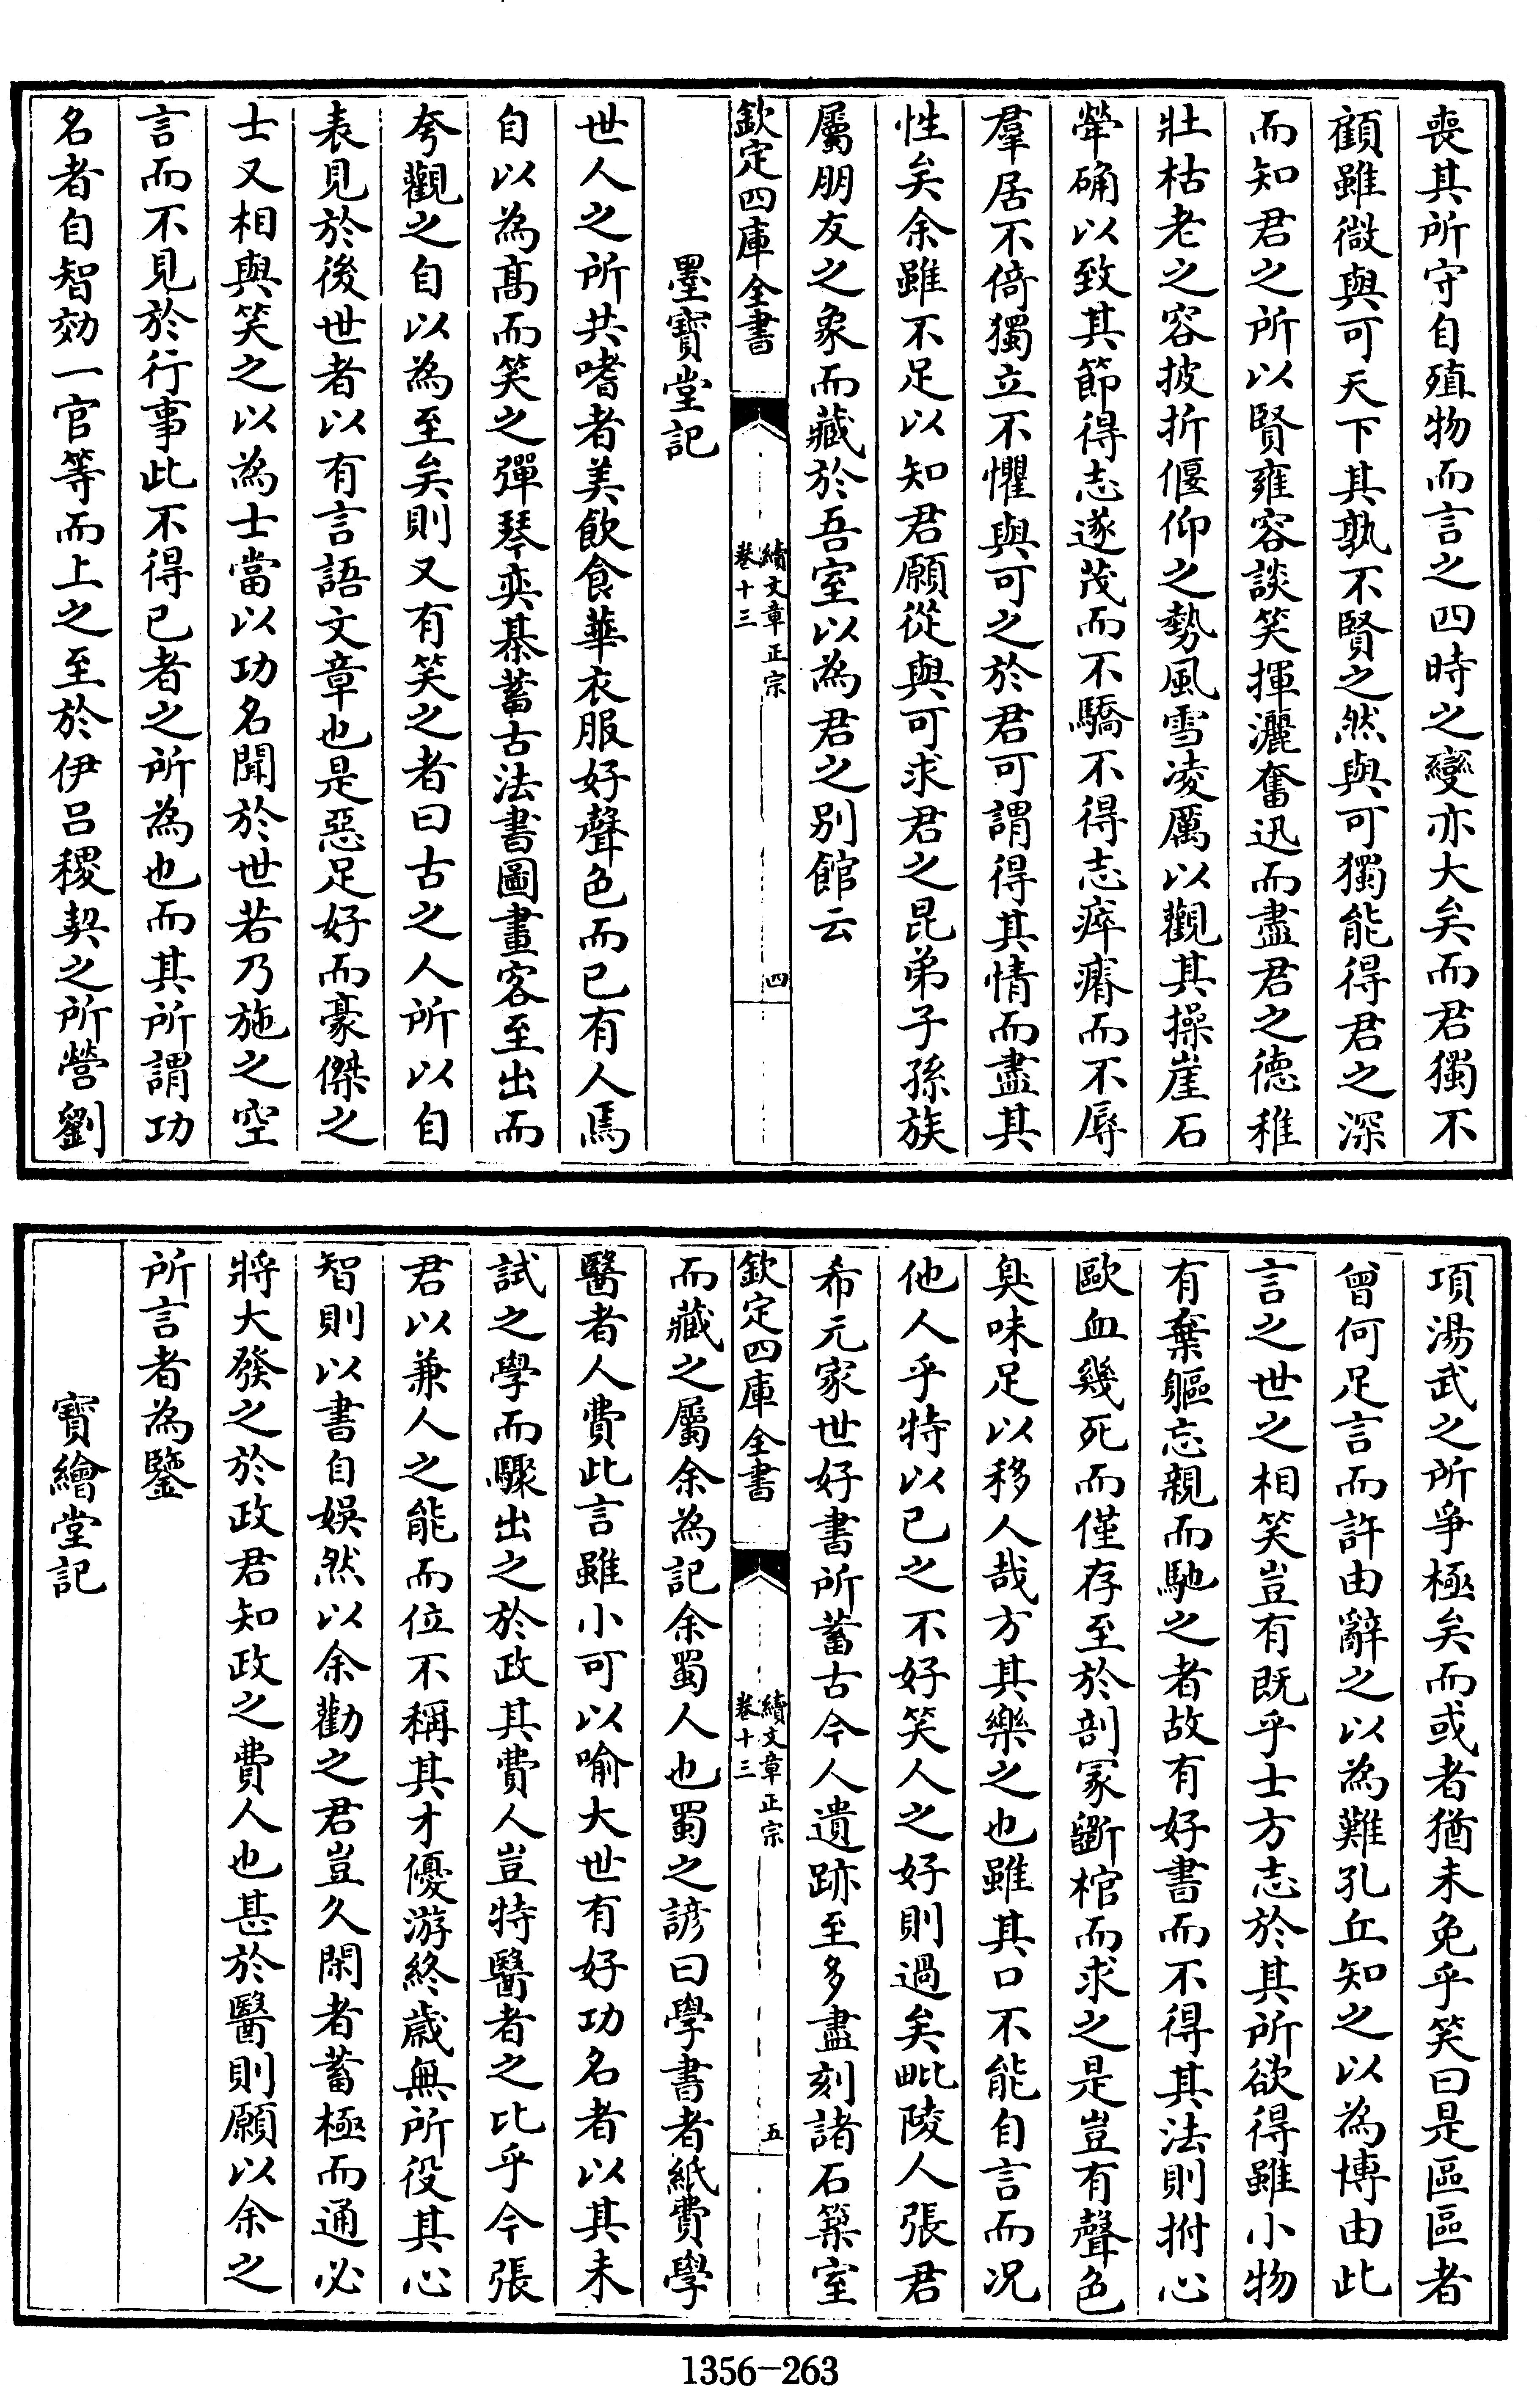 喪其所守自殖物而言之四時之變亦大矣而君獨不
顧雖微與可天下其孰不賢之然與可獨能得君之深
而知君之所以賢雍容談笑揮灑奮迅而盡君之德稚
壯枯老之容披折偃仰之勢風雪凌厲以觀其操崖石
犖确以致其節得志遂茂而不驕不得志瘁瘠而不辱
羣居不倚獨立不懼與可之於君可謂得其情而盡其
性矣余雖不足以知君願從與可求君之昆弟子孫族
屬朋友之象而藏於吾室以為君之別館云
欽定四庫全書
續文章正宗
卷十三
四
墨寶堂記
世人之所共嗜者美飲食華衣服好聲色而已有人馬
自以為高而笑之彈琴奕棊蓄古法書圖畫客至出而
夸觀之自以為至矣則又有笑之者曰古之人所以自
表見於後世者以有言語文章也是惡足好而豪傑之
士又相與笑之以為士當以功名聞於世若乃施之空
言而不見於行事此不得已者之所為也而其所謂功
名者自智効一官等而上之至於伊呂稷契之所營劉
項湯武之所爭極矣而或者猶未免乎笑曰是區區者
曾何足言而許由辭之以為難孔丘知之以為博由此
言之世之相笑豈有既乎士方志於其所欲得雖小物
有棄軀忘親而馳之者故有好書而不得其法則拊心
歐血幾死而僅存至於剖冢斵棺而求之是豈有聲色
臭味足以移人哉方其樂之也雖其口不能自言而况
他人乎特以已之不好笑人之好則過矣毗陵人張君
希元家世好書所蓄古今人遺跡至多盡刻諸石築室
欽定四庫全書
續文章正宗
卷十三
五
而藏之屬余為記余蜀人也蜀之諺曰學書者紙費學
醫者人費此言雖小可以喻大世有好功名者以其未
試之學而驟出之於政其費人豈特醫者之比乎今張
君以兼人之能而位不稱其才優游終歲無所役其心
智則以書自娛然以余勸之君豈久閑者蓄極而通必
將大發之於政君知政之費人也甚於醫則願以余之
所言者為鑒
寶繪堂記
1356-263